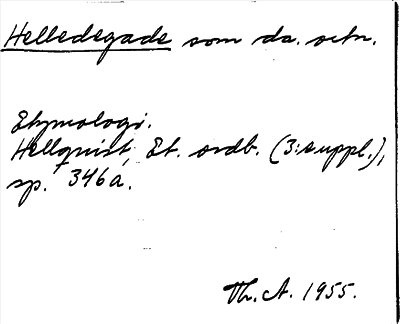 Helledegade som da. ortn.
Etymologi.
Hellquist, Et. ordb. (3:suppl.),
sp. 346a.
Th. A. 1955.